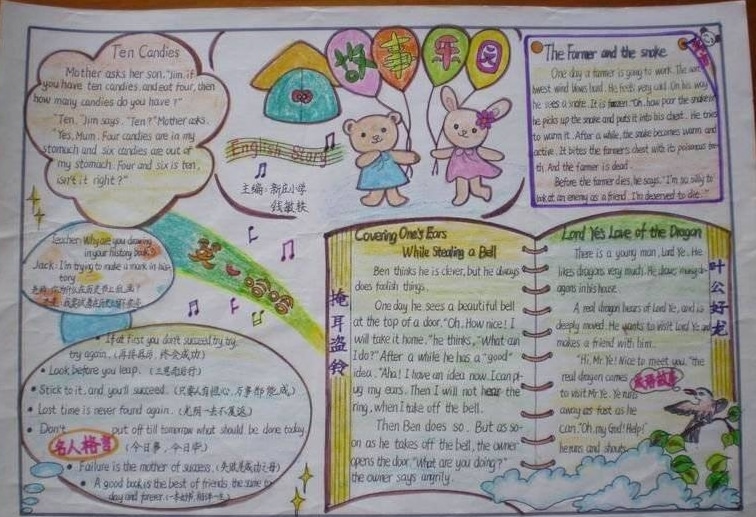 Ten Candies
Mother asks her son, "Jim, if
you have ten candies, and eat four, then
how many candies do you have?"
"Ten," Jim says. "Ten?" Mother asks.
"Yes, Mum. Four candies are in my
stomach and six candies are out of
my stomach. Four and six is ten,
isn't it right?"
故事乐园
English Song
主编：新庄小学
钱敏秩
The Farmer and the snake
One day a farmer is going to work. The nor
west wind blows hard. He feels very cold. On his way
he sees a snake. It is frozen. "Oh, how poor the snake is
he picks up the snake and puts it into his chest. He tries
to warm it. After a while, the snake becomes warm and
active. It bites the farmer's chest with its poisonous tee
th. And the farmer is dead.
Before the farmer dies, he says, "I'm so silly to
look at an enemy as a friend. I'm deserved to die."
Teacher: Why are you drawing
in your history book?
Jack: I'm trying to make a mark in his-
tory.
If at first you don't succeed, try, try,
try again. (再接再厉，终会成功)
Look before you leap. (三思而后行)
Stick to it, and you'll succeed. (只要人有恒心，万事都能成。)
Lost time is never found again. (光阴一去不复返)
Don't put off till tomorrow what should be done today.
名人格言 (今日事，今日毕)
Failure is the mother of success. (失败是成功之母)
A good book is the best of friends, the same to-
day and forever. (一本好书，相伴一生)
Covering One's Ears
While Stealing a Bell
掩耳盗铃
Ben thinks he is clever, but he always
does foolish things.
One day he sees a beautiful bell
at the top of a door. "Oh, How nice! I
will take it home." he thinks, "What can
I do?" After a while he has a "good"
idea. "Aha! I have an idea now. I can pl-
ug my ears. Then I will not hear the
ring, when I take off the bell.
Then Ben does so. But as so-
on as he takes off the bell, the owner
opens the door. "What are you doing?"
the owner says angrily.
Lord Ye's Love of the Dragon
叶公好龙
There is a young man, Lord Ye. He
likes dragons very much. He draws many dr
agons in his house.
A real dragon hears of Lord Ye, and is
deeply moved. He wants to visit Lord Ye and
makes a friend with him.
"Hi, Mr. Ye! Nice to meet you." the
real dragon comes
成语故事
to visit Mr. Ye. Ye runs
away as fast as he
can. "Oh, my God! Help!"
he runs and shouts.